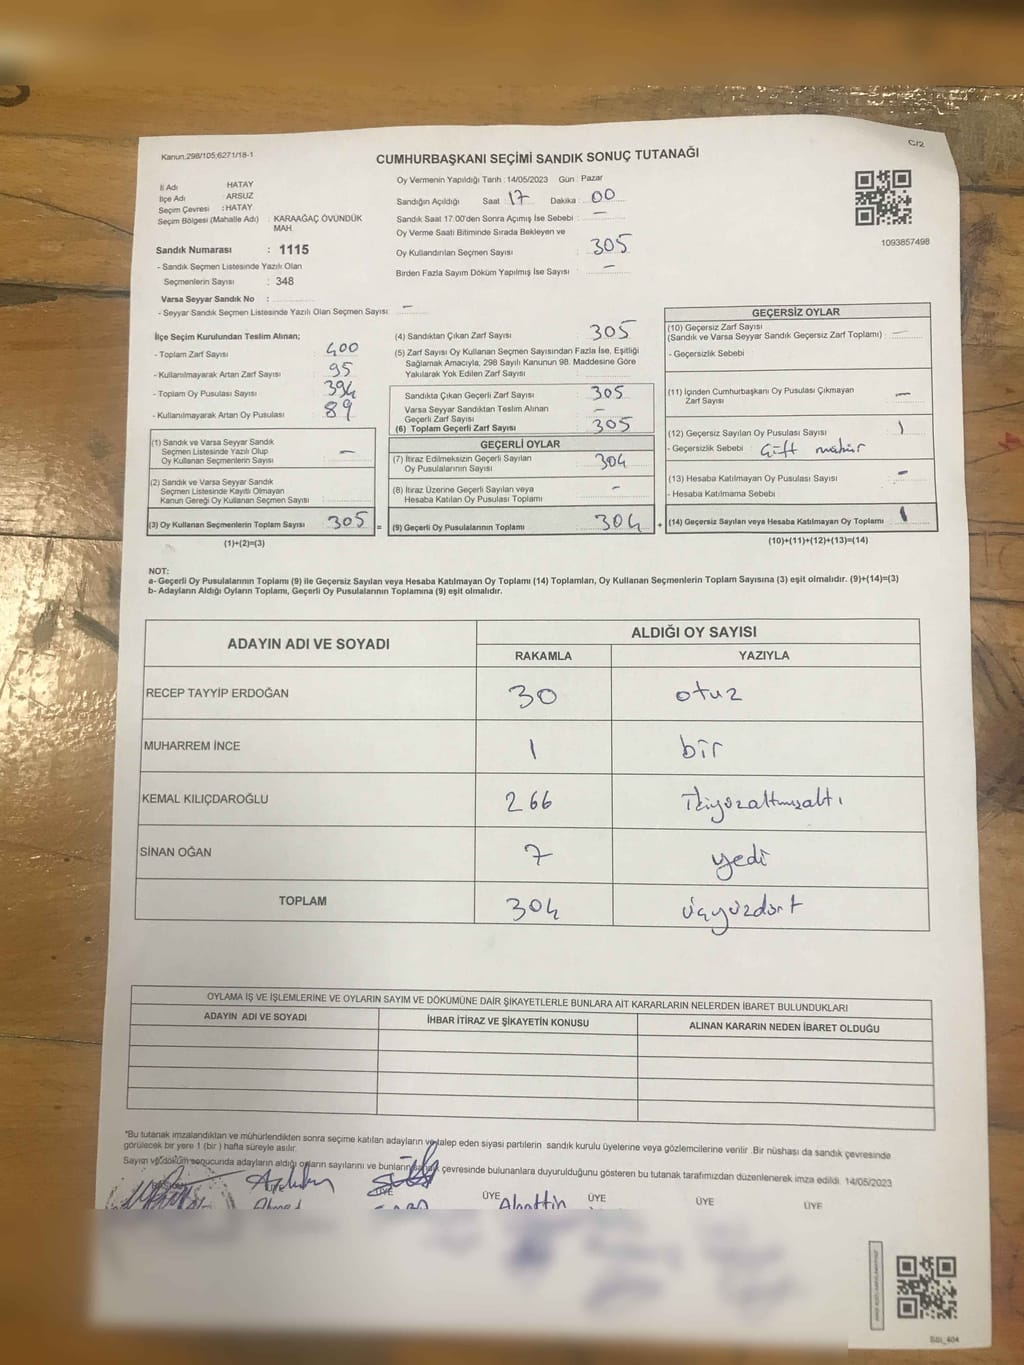 Kanun:298/105;6271/18-1
C/2
CUMHURBAŞKANI SEÇİMİ SANDIK SONUÇ TUTANAĞI
İl Adı : HATAY
İlçe Adı : ARSUZ
Seçim Çevresi : HATAY
Seçim Bölgesi (Mahalle Adı) : KARAAĞAÇ ÖVÜNDÜK
MAH.
Sandık Numarası : 1115
- Sandık Seçmen Listesinde Yazılı Olan
Seçmenlerin Sayısı : 348
Varsa Seyyar Sandık No :
- Seyyar Sandık Seçmen Listesinde Yazılı Olan Seçmen Sayısı: —
Oy Vermenin Yapıldığı Tarih :14/05/2023 Gün : Pazar
Sandığın Açıldığı Saat : 17 Dakika : 00
Sandık Saat 17:00'den Sonra Açımış İse Sebebi : —
Oy Verme Saati Bitiminde Sırada Bekleyen ve
Oy Kullandırılan Seçmen Sayısı : 305
Birden Fazla Sayım Döküm Yapılmış İse Sayısı : —
1093857498
İlçe Seçim Kurulundan Teslim Alınan;
- Toplam Zarf Sayısı : 400
- Kullanılmayarak Artan Zarf Sayısı : 95
- Toplam Oy Pusulası Sayısı : 394
- Kullanılmayarak Artan Oy Pusulası : 89
(1) Sandık ve Varsa Seyyar Sandık
Seçmen Listesinde Yazılı Olup
Oy Kullanan Seçmenlerin Sayısı : —
(2) Sandık ve Varsa Seyyar Sandık
Seçmen Listesinde Kayıtlı Olmayan
Kanun Gereği Oy Kullanan Seçmen Sayısı :
(3) Oy Kullanan Seçmenlerin Toplam Sayısı : 305 =
(1)+(2)=(3)
(4) Sandıktan Çıkan Zarf Sayısı : 305
(5) Zarf Sayısı Oy Kullanan Seçmen Sayısından Fazla İse, Eşitliği
Sağlamak Amacıyla; 298 Sayılı Kanunun 98. Maddesine Göre
Yakılarak Yok Edilen Zarf Sayısı :
Sandıkta Çıkan Geçerli Zarf Sayısı : 305
Varsa Seyyar Sandıktan Teslim Alınan
Geçerli Zarf Sayısı : —
(6) Toplam Geçerli Zarf Sayısı : 305
GEÇERLİ OYLAR
(7) İtiraz Edilmeksizin Geçerli Sayılan
Oy Pusulalarının Sayısı : 304
(8) İtiraz Üzerine Geçerli Sayılan veya
Hesaba Katılan Oy Pusulası Toplamı : -
(9) Geçerli Oy Pusulalarının Toplamı : 304 +
GEÇERSİZ OYLAR
(10) Geçersiz Zarf Sayısı
(Sandık ve Varsa Seyyar Sandık Geçersiz Zarf Toplamı) : —
- Geçersizlik Sebebi
(11) İçinden Cumhurbaşkanı Oy Pusulası Çıkmayan
Zarf Sayısı : —
(12) Geçersiz Sayılan Oy Pusulası Sayısı : 1
- Geçersizlik Sebebi : Çift mühür
(13) Hesaba Katılmayan Oy Pusulası Sayısı : -
- Hesaba Katılmama Sebebi :
(14) Geçersiz Sayılan veya Hesaba Katılmayan Oy Toplamı : 1
(10)+(11)+(12)+(13)=(14)
NOT:
a- Geçerli Oy Pusulalarının Toplamı (9) ile Geçersiz Sayılan veya Hesaba Katılmayan Oy Toplamı (14) Toplamları, Oy Kullanan Seçmenlerin Toplam Sayısına (3) eşit olmalıdır. (9)+(14)=(3)
b- Adayların Aldığı Oyların Toplamı, Geçerli Oy Pusulalarının Toplamına (9) eşit olmalıdır.
ADAYIN ADI VE SOYADI ALDIĞI OY SAYISI
RAKAMLA YAZIYLA
RECEP TAYYİP ERDOĞAN 30 otuz
MUHARREM İNCE 1 bir
KEMAL KILIÇDAROĞLU 266 İkiyüzaltmışaltı
SİNAN OĞAN 7 yedi
TOPLAM 304 üçyüzdört
OYLAMA İŞ VE İŞLEMLERİNE VE OYLARIN SAYIM VE DÖKÜMÜNE DAİR ŞİKAYETLERLE BUNLARA AİT KARARLARIN NELERDEN İBARET BULUNDUKLARI
ADAYIN ADI VE SOYADI İHBAR İTİRAZ VE ŞİKAYETİN KONUSU ALINAN KARARIN NEDEN İBARET OLDUĞU
*Bu tutanak imzalandıktan ve mühürlendikten sonra seçime katılan adayların ve talep eden siyasi partilerin sandık kurulu üyelerine veya gözlemcilerine verilir .Bir nüshası da sandık çevresinde
görülecek bir yere 1 (bir ) hafta süreyle asılır.
Sayım ve döküm sonucunda adayların aldığı oyların sayılarını ve bunların çevresinde bulunanlara duyurulduğunu gösteren bu tutanak tarafımızdan düzenlenerek imza edildi. 14/05/2023
BAŞKAN ÜYE ÜYE ÜYE ÜYE ÜYE ÜYE
Ahmet Alaattin